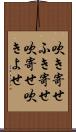 吹き寄せ
ふき寄せ
吹寄せ吹
きよせ